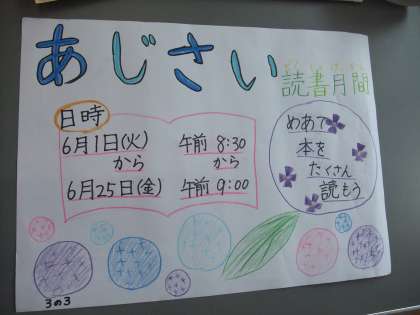 あじさい
どくしょげっかん
読書月間
日時
6月1日(火) 午前 8:30
から から
6月25日(金) 午前 9:00
めあて
本を
たくさん
読もう
3の3